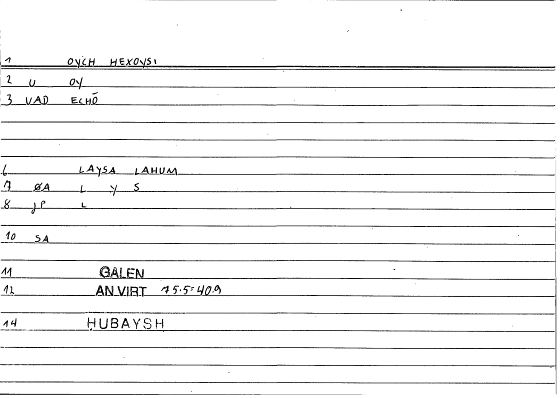 1 OYCH HEXOYSI
2 U OY
3 VAD ECHŌ
6 LAYSA LAHUM
7 ØA L Y S
8 JP L
10 SA
11 GALEN
12 AN VIRT 15.5=409
14 HUBAYSH